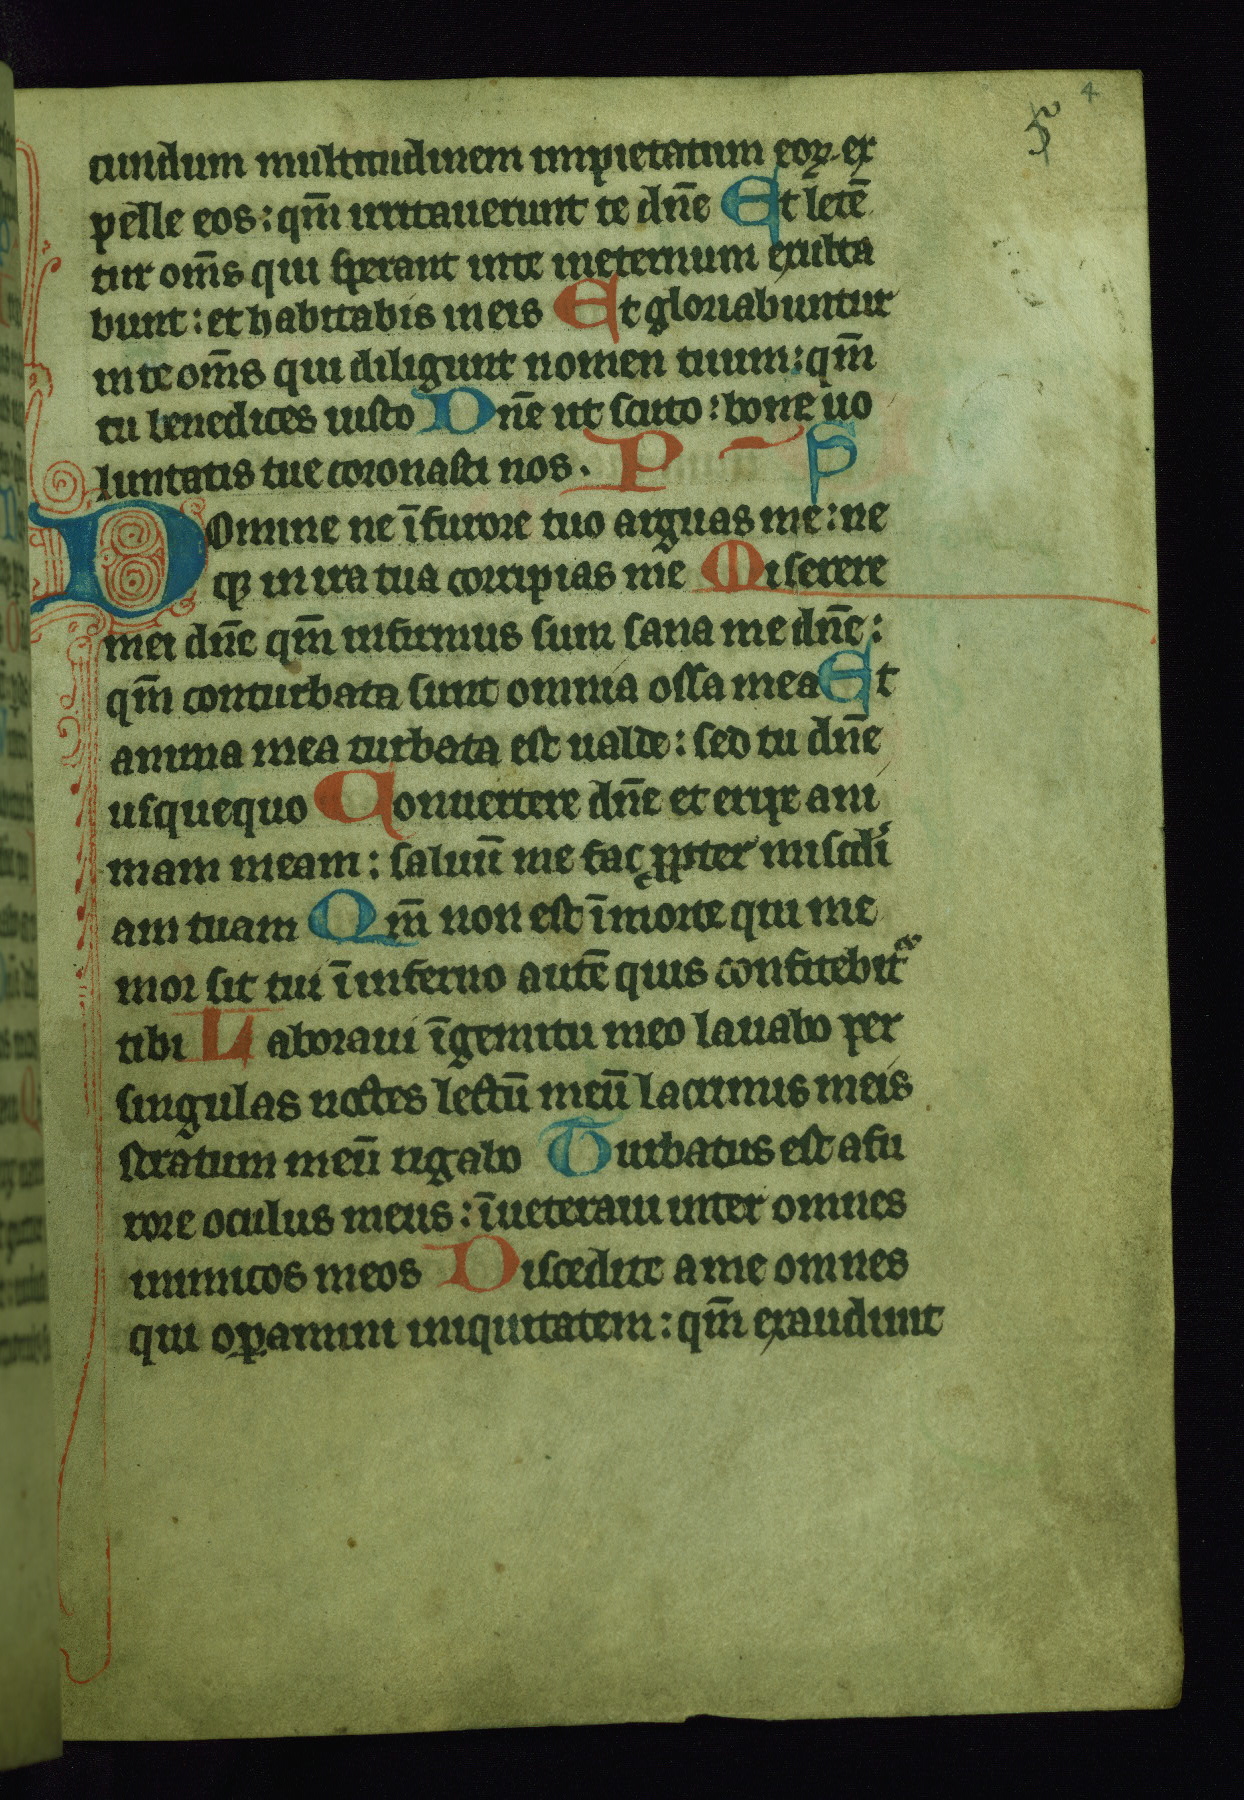 4
5
cundum multitudinem impietatum eoꝝ ex
pelle eos : qm̄ irritauerunt te dn̄e Et letē
tur om̄s qui sperant inte ineternum exulta
bunt : et habitabis in eis Et gloriabuntur
in te om̄s qui diligunt nomen tuum : qm̄
tu benedices iusto Dn̄e ut scuto : bone uo
luntatis tue coronasti nos . P S
Domine ne ī furore tuo arguas me : ne
qꝫ in ira tua corripias me Miserere
mei dn̄e qm̄ infirmus sum sana me dn̄e :
qm̄ conturbata sunt omnia ossa mea Et
anima mea turbata est ualde : sed tu dn̄e
usquequo Conuertere dn̄e et eripe ani
mam meam : saluū me fac ꝓpter miscd̓i
am tuam Qm̄ non est ī morte qui me
mor sit tui ī inferno autē quis confitebit᷑
tibi Laboraui ī gemitu meo lauabo per
singulas noctes lectū meū lacrimis meis
stratum meū rigabo Turbatus est a fu
rore oculus meus : īueteraui inter omnes
inimicos meos Discedite a me omnes
qui oꝑamini iniquitatem : qm̄ exaudiuit